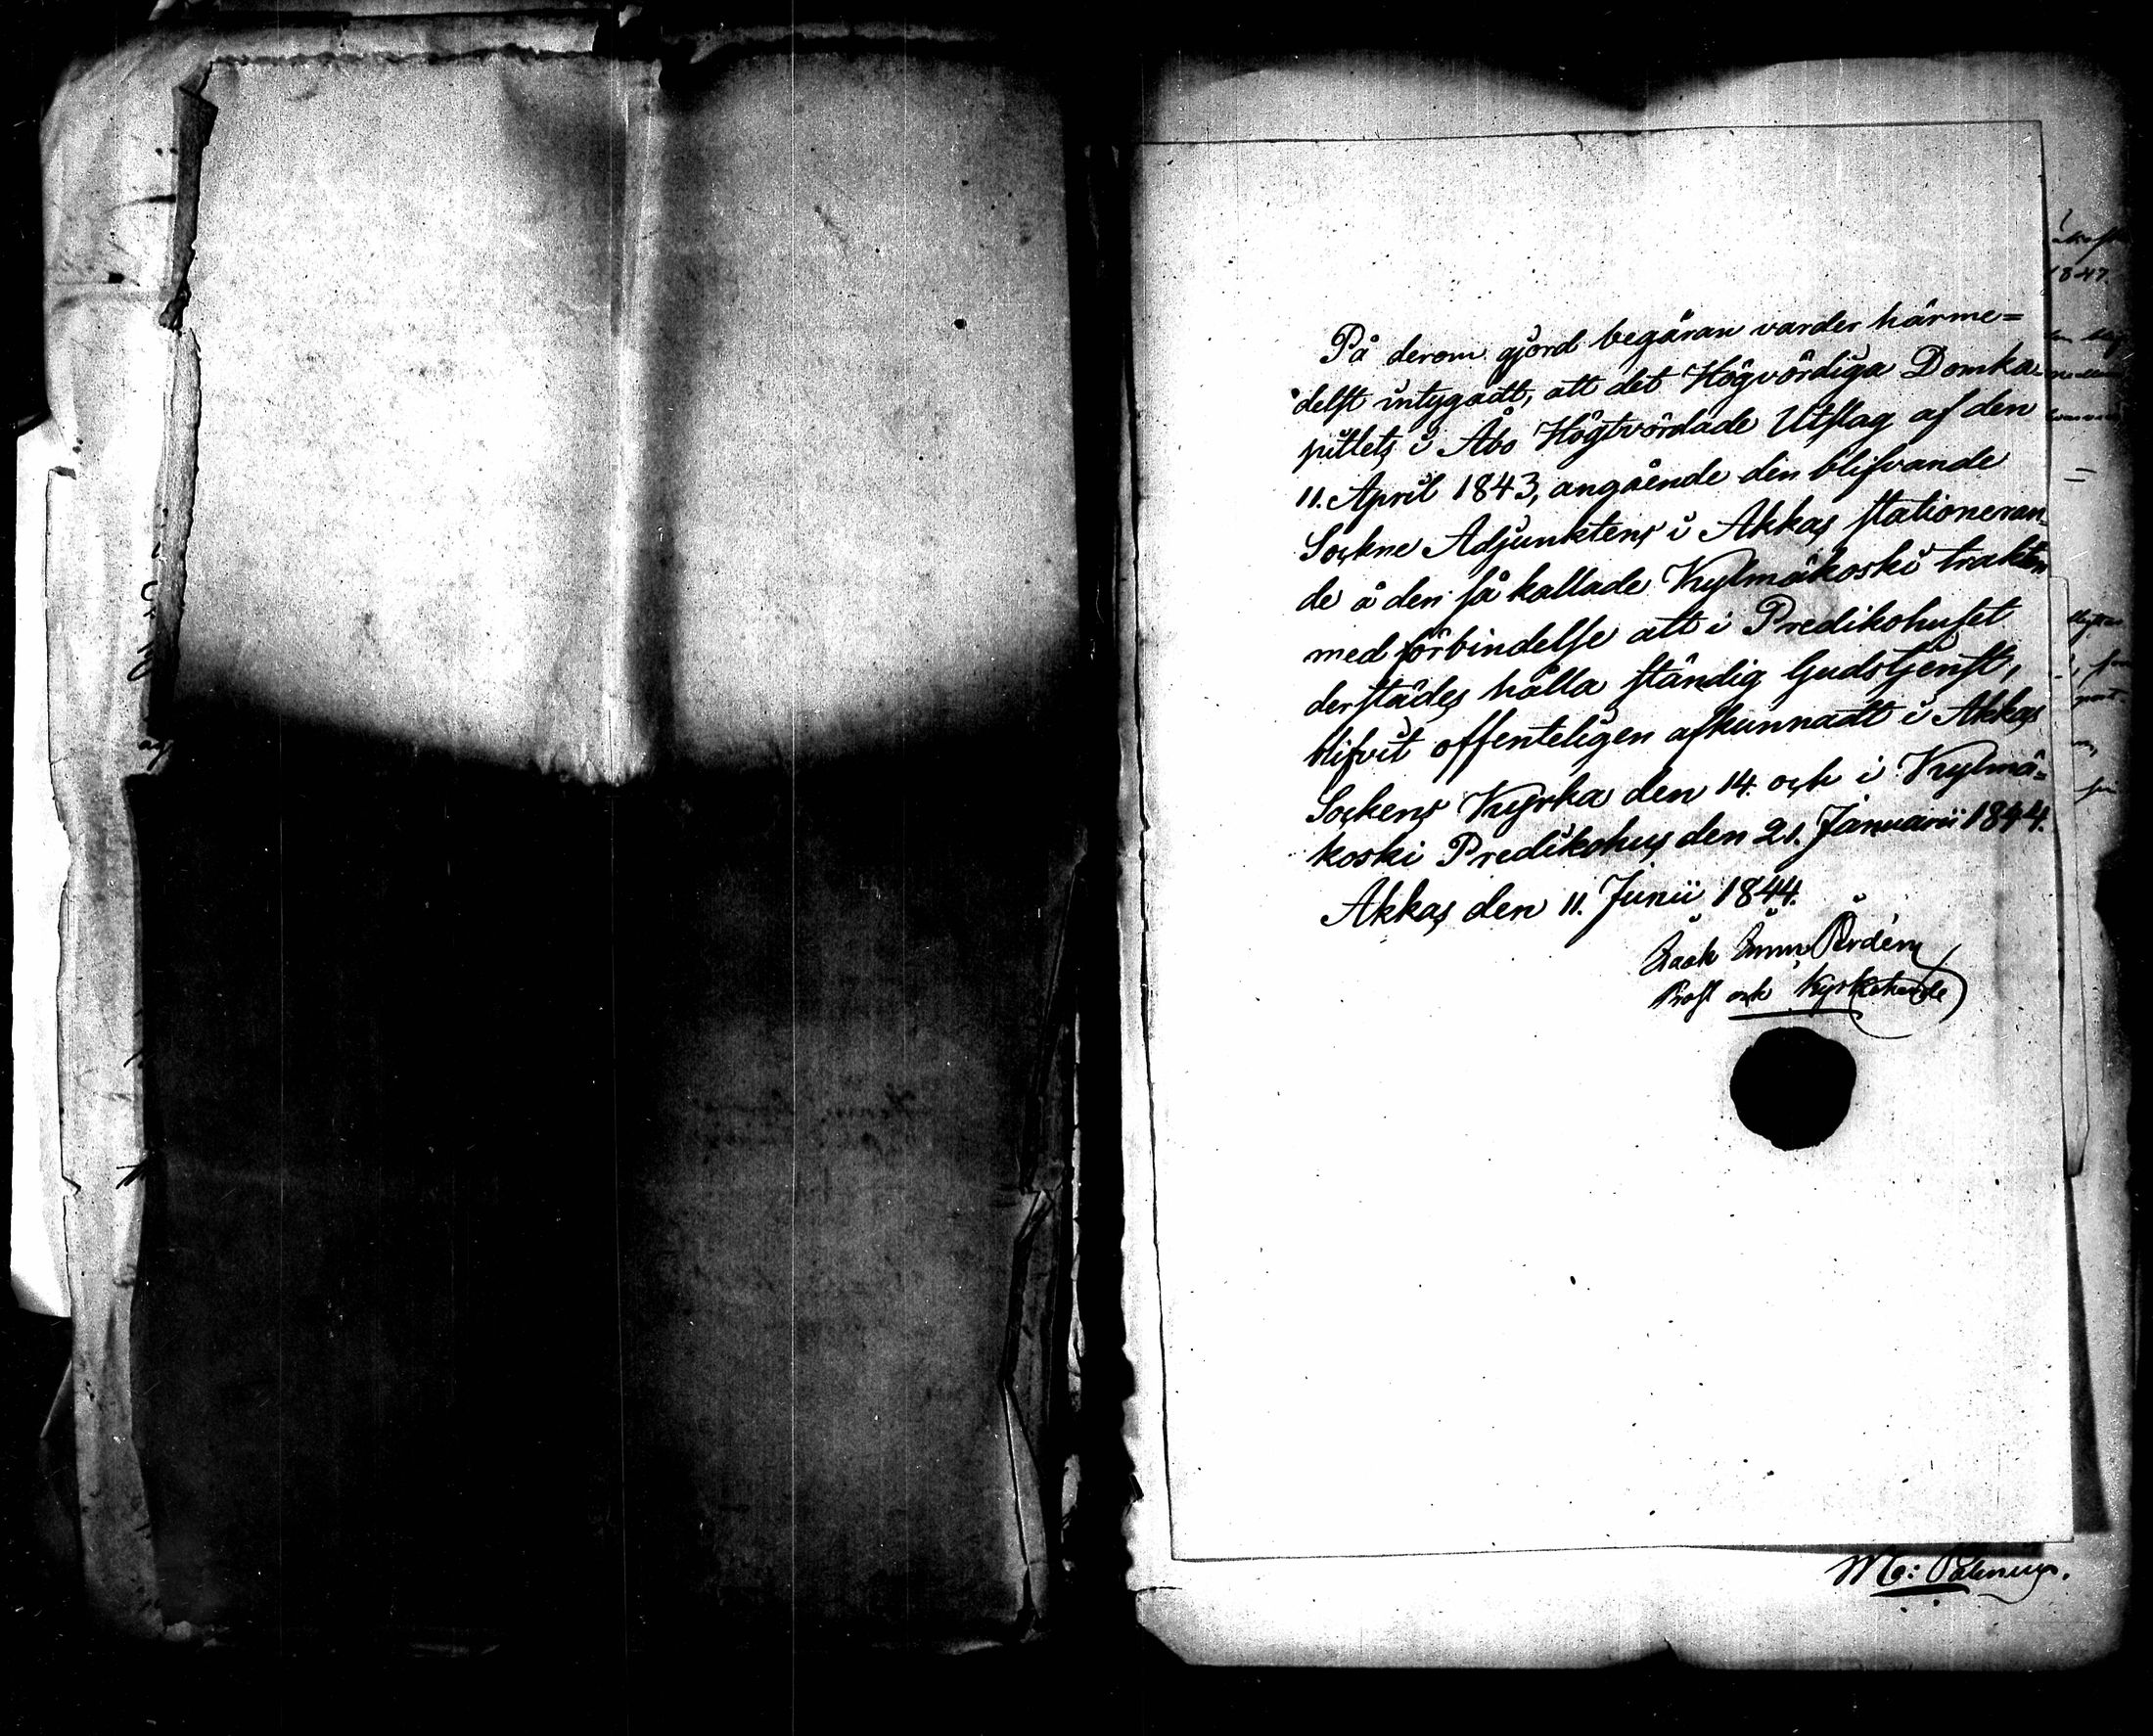 På derom gjord begäran varder härme=
delst intygadt, att det Högvördiga Domka-
pitlets i Åbo Högtvördade Utslag af den
11. April 1843, angående den blifvande
Sockne Adjunktens i Akkas stationeran-
de å den så kallade Kylmäkoski trakten
med förbindelse att i Predikohuset
derstädes hålla ständig Gudstjenst,
blifvit offenteligen afkunnadt i Akkas
Sockens Kyrka den 14. och i Kylmä-
koski Predikohus den 21. Januarii 1844.
Akkas den 11. Junii 1844.
Prost och Kyrkoherde
1847.